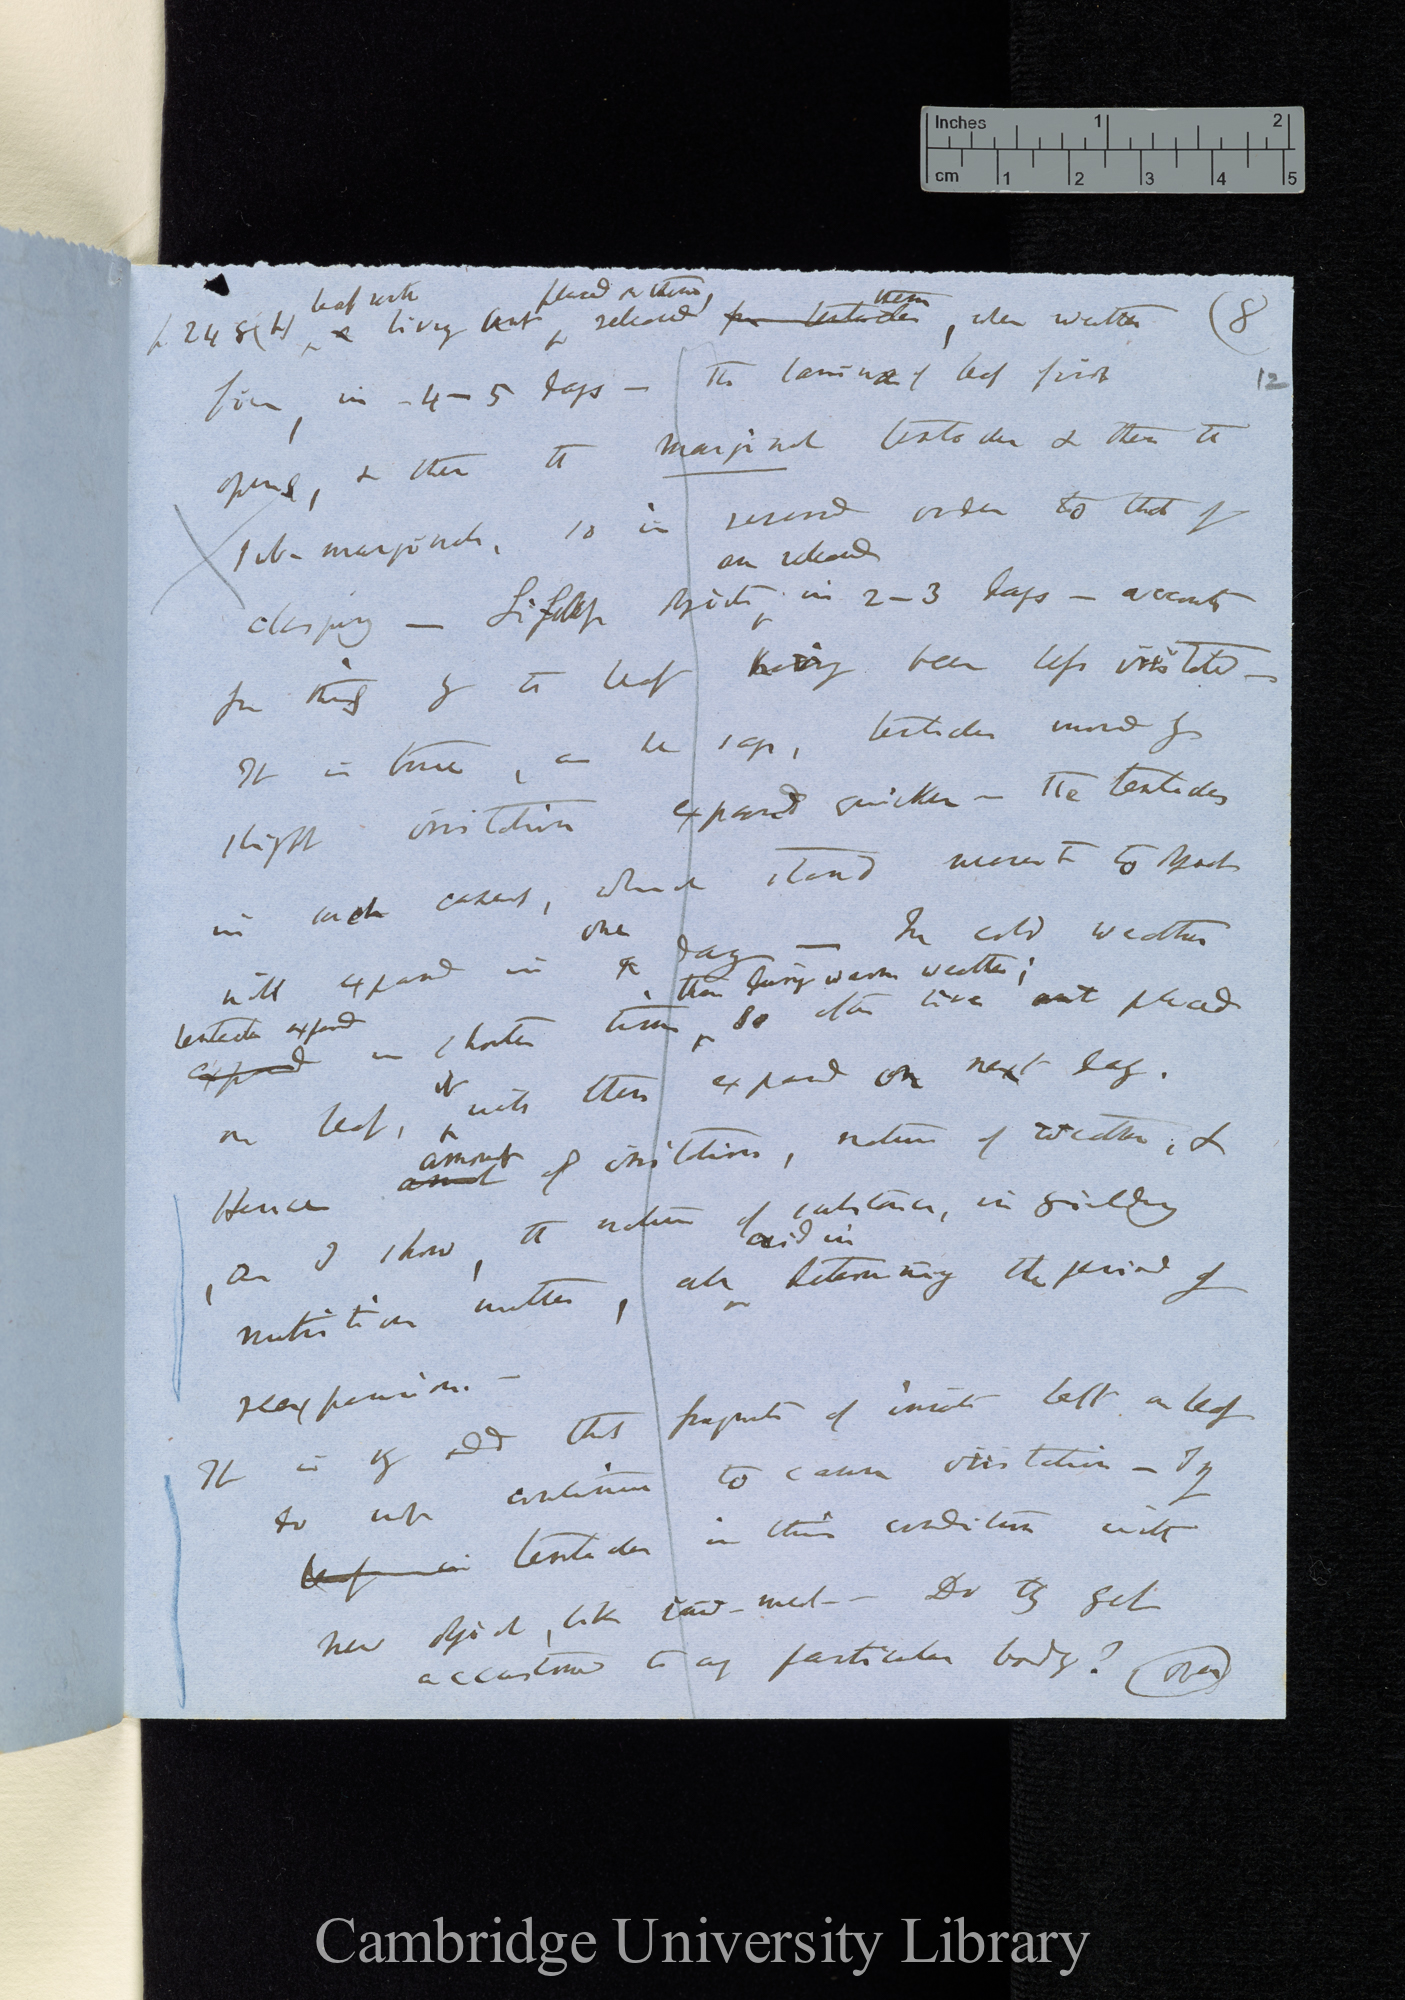 Inches 1 2
cm 1 2 3 4 5
(8
12
leaf with placed on them, them
p. 248(b) a living ant released for tentacles, when weather
fine, in -4-5 days — The lamina of leaf first
opens, & then the marginal tentacles & then the
sub-marginals, so in reversed order to that of
are released
clasping — Lifeless objects in 2-3 days — accounts
for this by the leaf having been less irritated —
It is true, as he says, tentacles moved from
slight irritation expand quicker — The tentacles
in such cases, which stand nearest to object
one
will expand in a day — In cold weather
than during warm weather;
tentacles expand
expand in shorter time so often live ant placed
it
on leaf, with them expand on next day.
amount
Hence amount of irritation, nature of weather, &
, as I show, the nature of substance, in yielding
aid in
nutritive matter, all determining the period of
reexpansion. —
It is by add that fragments of insects left on leaf
do not continue to cause irritation — Try
leaf in tentacles in this condition with
new object, like raw-meat — Do they get
accustomed to any particular body? (over)
Cambridge University Library